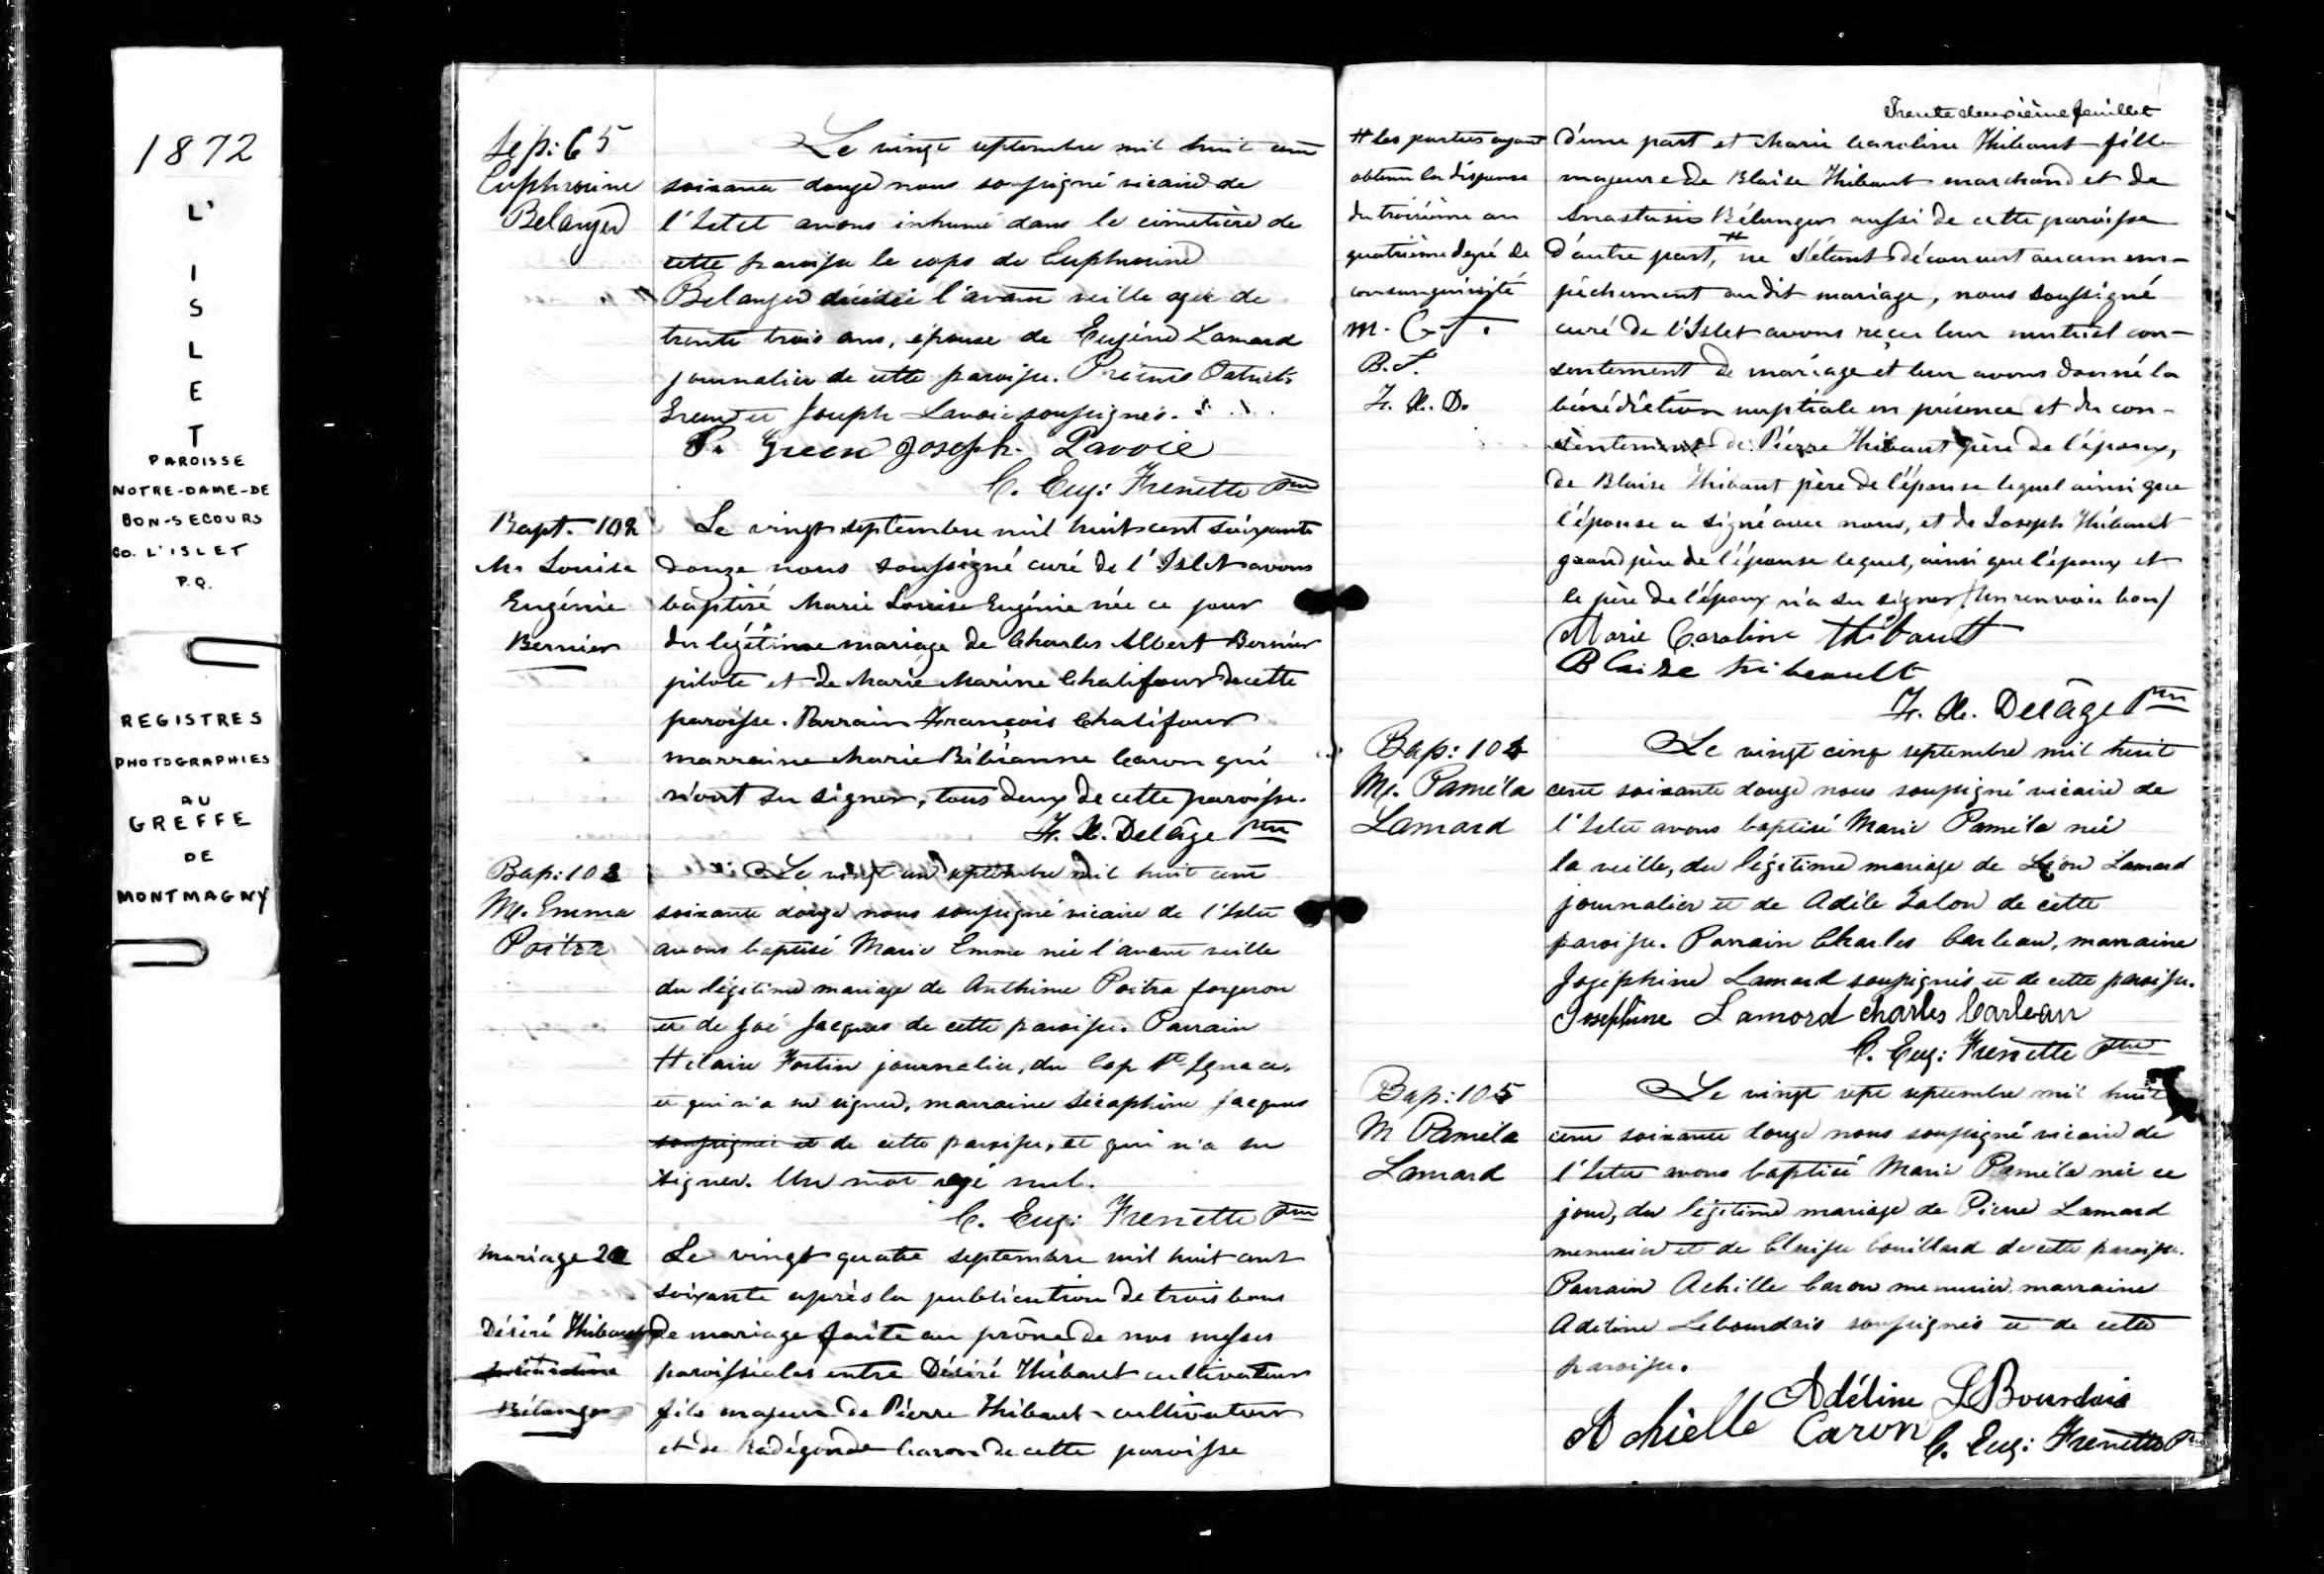 1872
L'
I
S
L
E
T
PAROISSE
NOTRE-DAME-DE
BON-SECOURS
CO. L'ISLET
P.Q.
REGISTRES
PHOTOGRAPHIES
AU
GREFFE
DE
MONTMAGNY
Sép: 65
Euphrosine
Belanger
Le vingt septembre mil huit cent
soixante douze nous soussigné vicaire de
l'Islet avons inhumé dans le cimetière de
cette paroisse le corps de Euphrosine
Belanger décédée l'avant veille agée de
trente trois ans, épouse de Eugène Lamard
journalier de cette paroisse. Présents Patrick
Green et Joseph Lavoie soussignés.
P. Green Joseph Lavoie
C. Eug: Frenette Ptre
Bapt. 102
M. Louise
Eugénie
Bernier
Le vingt septembre mil huit cent soixante
douze nous soussigné curé de l'Islet avons
baptisé Marie Louise Eugénie née ce jour
du légitime mariage de Charles Albert Bernier
pilote et de Marie Marine Chalifour de cette
paroisse. Parrain François Chalifour
marraine Marie Bibianne Caron qui
n'ont su signer, tous deux de cette paroisse.
F. X. Delâge Ptre
Bap: 103
Me. Emma
Poitra
Le vingt un septembre mil huit cent
soixante douze nous soussigné vicaire de l'Islet
avons baptisé Marie Emma née l'avant veille
du légitime mariage de Anthime Poitra forgeron
et de Zoé Jacques de cette paroisse. Parrain
Hilaire Fortin journalier, du Cap St Ignace,
et qui n'a su signer, marraine Séraphine Jacques
soussignée et de cette paroisse, et qui n'a su
signer. Un mot rayé nul.
C. Eug: Frenette Ptre
Mariage 22
Désiré Thibault
Bélanger
Le vingt quatre septembre mil huit cent
soixante après la publication de trois bans
de mariage faite au prône de nos messes
paroissiales entre Désiré Thibault cultivateur
fils majeur de Pierre Thibault cultivateur
et de Radégonde Caron de cette paroisse
Trente deuxième feuillet
# les parties ayant
obtenu la dispense
du troisième au
quatrième degré de
consanguinité
M. C. T.
B. T.
F. X. D.
d'une part et Marie Caroline Thibault fille
majeure de Blaise Thibault marchand et de
Anastasie Bélanger aussi de cette paroisse
d'autre part, # ne s'étant découvert aucun em-
pêchement au dit mariage, nous soussigné
curé de l'Islet avons reçu leur mutuel con-
sentement de mariage et leur avons donné la
bénédiction nuptiale en présence et du con-
sentement de Pierre Thibault père de l'époux,
de Blaise Thibault père de l'épouse lequel ainsi que
l'épouse a signé avec nous, et de Joseph Thibault
grand père de l'épouse lequel, ainsi que l'époux et
le père de l'époux n'a su signer / Un renvoi bon /
Marie Caroline Thibault
Blaise thibeault
F. X. Delâge Ptre
Bap: 104
Me. Paméla
Lamard
Le vingt cinq septembre mil huit
cent soixante douze nous soussigné vicaire de
l'Islet avons baptisé Marie Paméla née
la veille, du légitime mariage de Léon Lamard
journalier et de Adèle Talon de cette
paroisse. Parrain Charles Carleau, marraine
Joséphine Lamard soussignés et de cette paroisse.
Joséphine Lamord Charles Carleau
C. Eug: Frenette Ptre
Bap: 105
M Paméla
Lamard
Le vingt sept septembre mil huit
cent soixante douze nous soussigné vicaire de
l'Islet avons baptisé Marie Paméla née ce
jour, du légitime mariage de Pierre Lamard
menuisier et de Couillard de cette paroisse.
Parrain Achille Caron menuisier, marraine
Adeline Lebourdais soussignés et de cette
paroisse.
Adéline LBourdais
Achielle Caron
C. Eug: Frenette Ptre